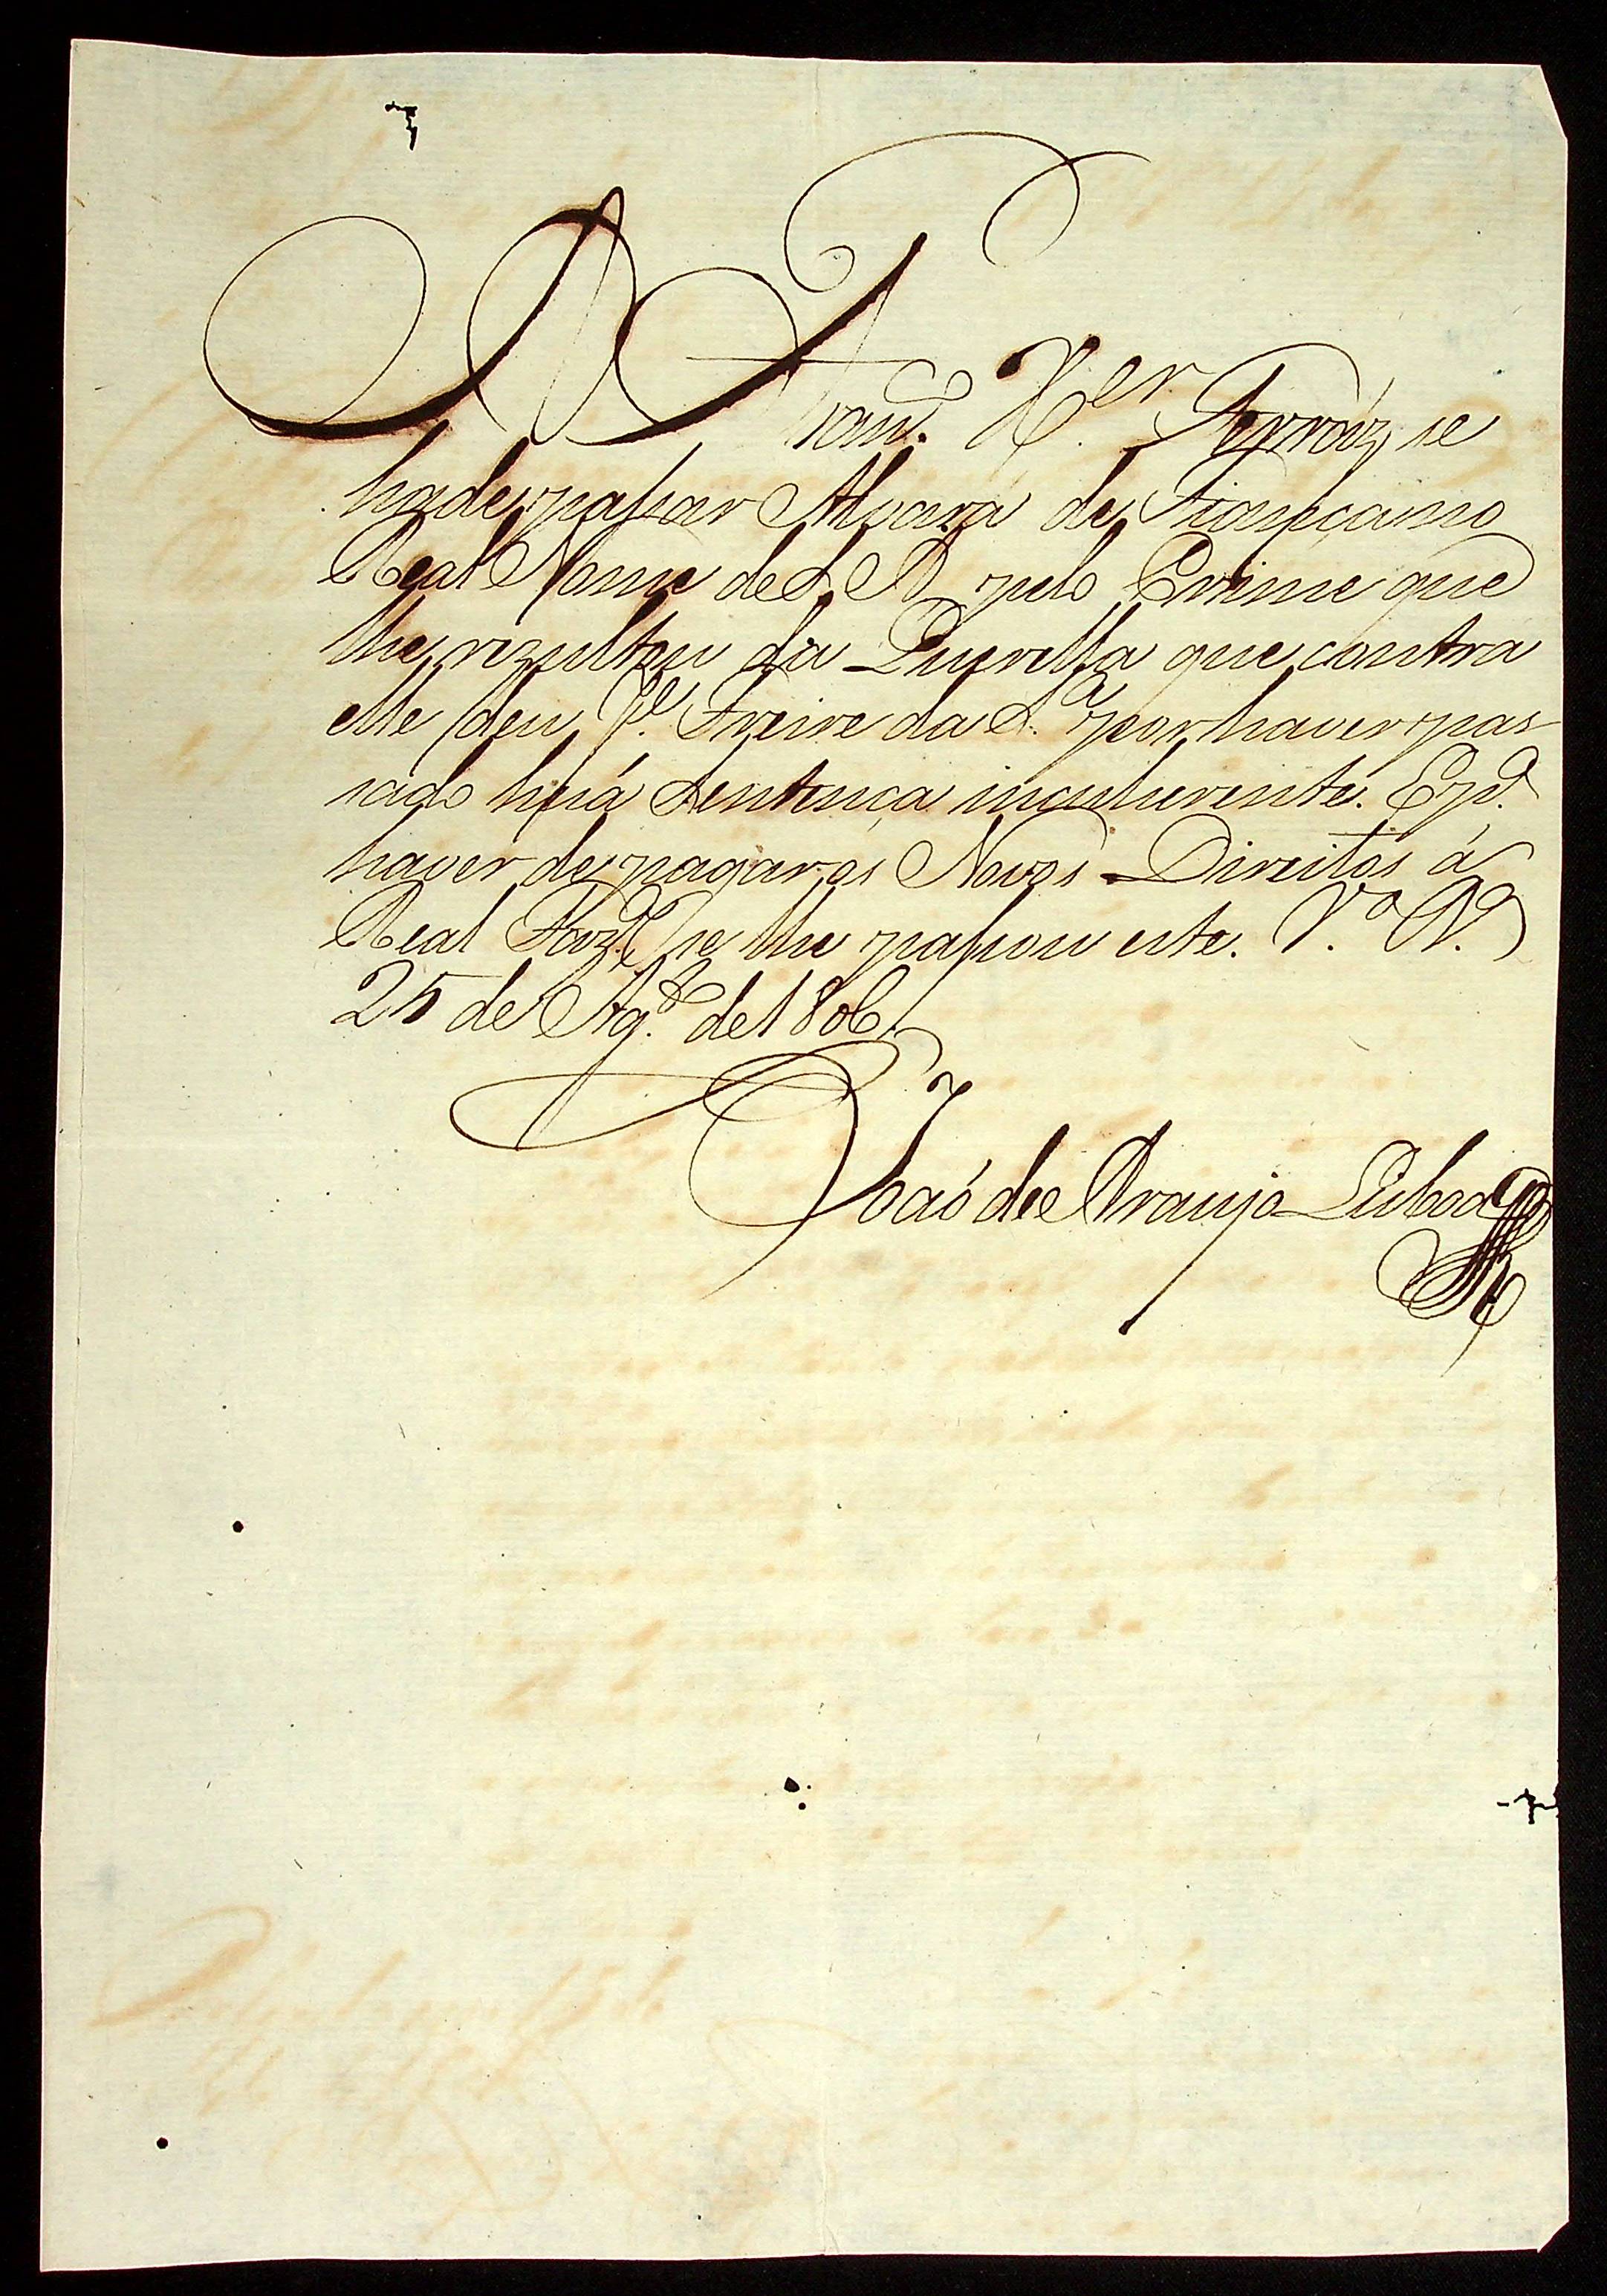 A Franco. Xer. Ferráz se
hade passar Alvará de Fiança no
Real Nome de S. A. pelo Crime que
lhe rezultou da Querella que contra
elle deu Je. Freire da Sa. por haver pas-
sado huá Sentença inculurente. E pa.
haver de pagar os Novos Direitos á
Real Fazda. se lhe passou este. Va. Ra.
25 de Agto. de 1806.
Joaó de Araujo Lisboa